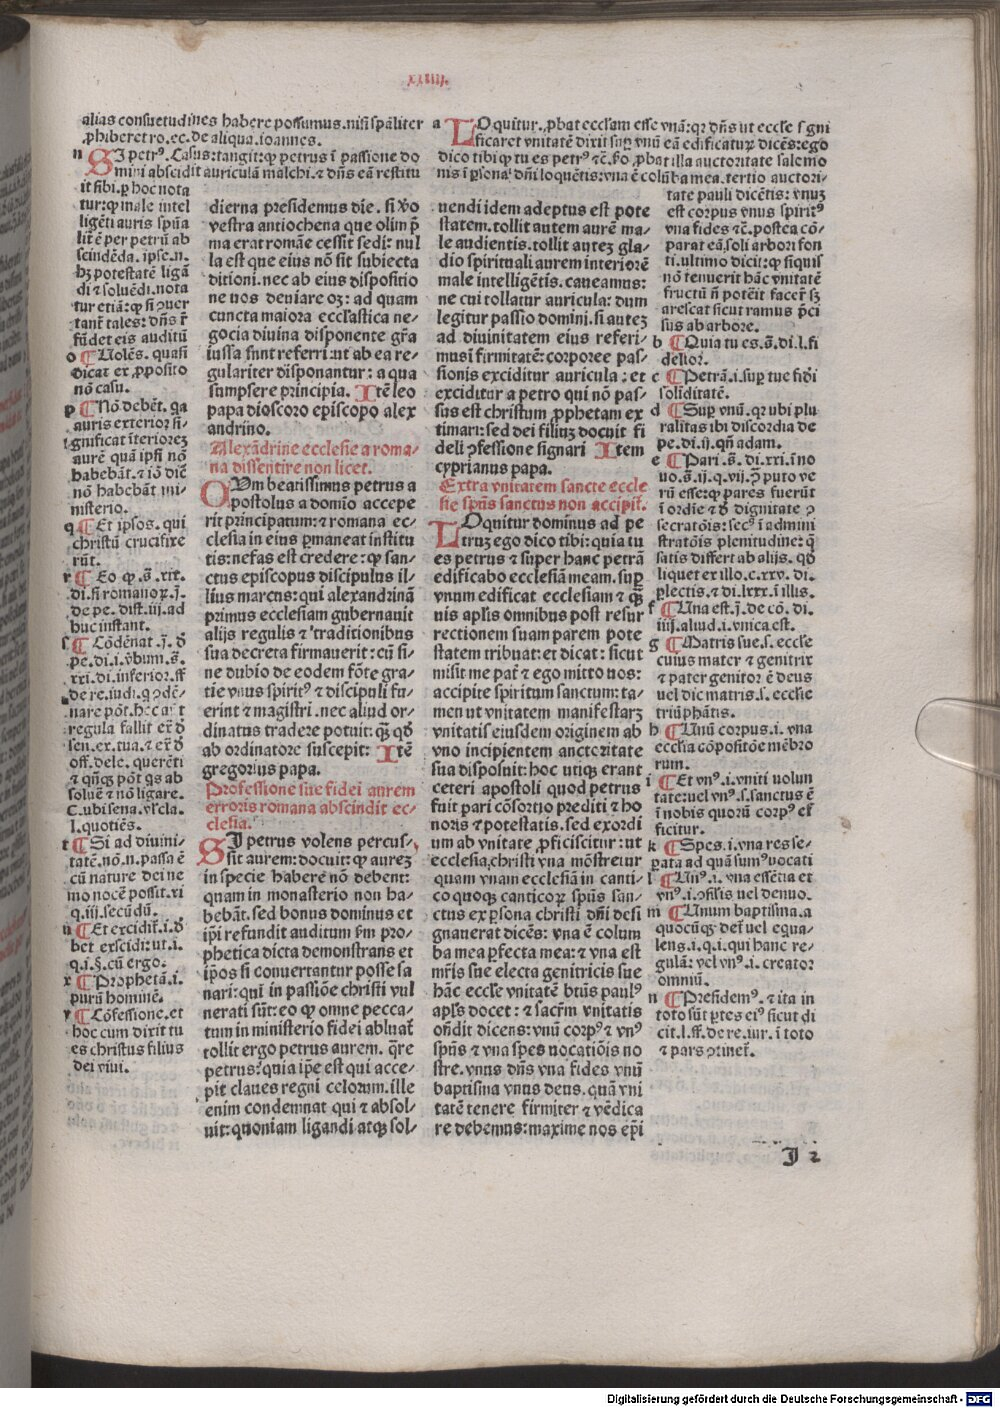 xxiiij.
alias consuetudines habere possumus. nisi spaliter
ꝓhiberet ro. ec. de aliqua. ioannes.
n SI petrꝰ. Casus: tangit: ꝙ petrus ī passione do
mini abscidit auriculā malchi. ⁊ dn̄s eā restitu
it sibi. ꝑ hoc nota
tur: ꝙ male intel
ligēti auris spūa
lit̄ ē per petrū ab
scindēda. ipse. n.
hꝫ potestatē ligā
di ⁊ soluēdi. nota
tur etiā: ꝙ si ꝯuer
tant̄ tales: dn̄s r̄
fūdet eis auditū
o ¶ Uolēs. quasi
dicat ex ꝓposito
nō casu.
p ¶ Nō debēt. qa
auris exterior si-
gnificat īteriorez
aurē quā ipsi nō
habebāt. ⁊ iō diē
nō habebāt mi-
nisterio.
q ¶ Et ipsos. qui
christū crucifixe
rūt.
r ¶ Eo ꝙ. s̄. xix.
di. si romanoꝝ. j.
de pe. dist. iij. ad
huc instant.
s ¶ Cōdēnat. j. d̄
pe. di. i. v̄bum. s̄.
xxi. di. inferior. ff
de re. iudi. ꝙ ꝯdē-
nare pōt. hec aūt
regula fallit ex̄ d̄
sen. ex. tua. ⁊ ex̄ d̄
off. dele. querēti
⁊ qn̄qꝫ pōt qs ab
soluē ⁊ nō ligare.
C. ubi sena. vl̓ cla.
l. quotiēs.
t ¶ Si ad diuini-
tatē. nō. n. passa ē
cū nature dei ne
mo nocē possit. xi
q. iii. secūdū.
u ¶ Et excidit̄. i. d̄
bet exscidi: ut. i.
q. i. §. cū ergo.
x ¶ Prophetā. i.
purū hominē.
y ¶ Cōfessione. et
hoc cum dixit tu
es christus filius
dei viui.
dierna presidemus die. si v̓o
vestra antiochena que olim p̄
ma erat romāe cessit sedi: nul
la est que eius nō sit subiecta
ditioni. nec ab eius dispositio
ne uos deuiare oꝫ: ad quam
cuncta maiora eccl̓astica ne-
gocia diuina disponente gr̄a
iussa sunt referri: ut ab ea re-
gulariter disponantur: a qua
sumpsere principia. Itē leo
papa dioscoro episcopo alex
andrino.
Alexādrine ecclesie a roma-
na dissentire non licet.
CUm beatissimus petrus a
postolus a domīo accepe
rit principatum: ⁊ romana ec-
clesia in eius ꝑmaneat institu
tis: nefas est credere: ꝙ san-
ctus episcopus discipulus il-
lius marcus: qui alexandrinā
primus ecclesiam gubernauit
alijs regulis ⁊ traditionibus
sua decreta firmauerit: cū si-
ne dubio de eodem fōte gra-
tie vnus spiritꝰ ⁊ discipuli fu-
erint ⁊ magistri. nec aliud or-
dinatus tradere potuit: qꝫ̄ qd̓
ab ordinatore suscepit: Itē
gregorius papa.
Professione sue fidei aurem
erroris romana abscindit ec-
clesia.
SI petrus volens percus-
sit aurem: docuit: ꝙ aureꝫ
in specie habere nō debent:
quam in monasterio non ha-
bebāt. sed bonus dominus et
ip̄i refundit auditum ẜm pro-
phetica dicta demonstrans et
ip̄os si conuertantur posse sa
nari: qui in passiōe christi vul
nerati sūt: eo ꝙ omne pecca-
tum in ministerio fidei abluat̄
tollit ergo petrus aurem. q̄re
petrus? quia ip̄e est qui acce-
pit claues regni celorum. ille
enim condemnat qui ⁊ absol-
uit: quoniam ligandi atqꝫ sol-
uendi idem adeptus est pote
statem. tollit autem aurē ma-
le audientis. tollit auteꝫ gla-
dio spirituali aurem interiorē
male intelligētis. caueamus:
ne cui tollatur auricula: dum
legitur passio domini. si auteꝫ
ad diuinitatem eius referi-
musi firmitatē: corporee pas-
sionis exciditur auricula: et
exciditur a petro qui nō pas-
sus est christum ꝓphetam ex
timari: sed dei filiuꝫ docuit fi
deli ꝯfessione signari Item
cyprianus papa.
Extra vnitatem sancte eccle
sie spūs sanctus non accipit̄.
LOquitur dominus ad pe
truꝫ ego dico tibi: quia tu
es petrus ⁊ super hanc petrā
edificabo ecclesiā meam. suꝑ
vnum edificat ecclesiam ⁊ qꝫ̄
uis apl̓is omnibus post resur
rectionem suam parem pote
statem tribuat: et dicat: sicut
misit me pat̄ ⁊ ego mitto uos:
accipite spiritum sanctum: ta-
men ut vnitatem manifestarꝫ
vnitatis eiusdem originem ab
vno incipientem auctoritate
sua disposuit: hoc utiqꝫ erant
ceteri apostoli quod petrus
fuit pari cōsortio prediti ⁊ ho
noris ⁊ potestatis. sed exordi
um ab vnitate ꝓficiscitur: ut
ecclesia christi vna mōstretur
quam vnam ecclesiā in canti-
co quoqꝫ canticoꝝ spūs san-
ctus ex ꝑsona christi dn̄i desi
gnauerat dicēs: vna ē colum
ba mea ꝑfecta mea: ⁊ vna est
mr̄is sue electa genitricis sue
hāc eccl̓e vnitatē btūs paulꝰ
apl̓s docet: ⁊ sacr̄m vnitatis
on̄dit dicens: vnū corpꝰ ⁊ vnꝰ
spūs ⁊ vna spes uocatiōis no
stre. vnus dn̄s vna fides vnū
baptisma vnus deus. quā vni
tatē tenere firmiter ⁊ vēdica
re debemus: maxime nos ep̄i
a LOquitur. ꝓbat eccl̓iam esse vnā: qꝛ dn̄s ut eccl̓e signi
ficaret vnitatē dixit suꝑ vnū eā edificatuꝝ dicēs: ego
dico tibi ꝙ tu es petrꝰ ⁊c̄. scd̓o ꝓbat illa auctoritate salemo
nis ī ꝑsona dn̄i loquētis: vna ē colūba mea. tertio auctori-
tate pauli dicētis: vnuꝫ
est corpus vnus spiritꝰ
vna fides ⁊c̄. postea cō-
parat eā soli arbori fon
ti. ultimo dicit: ꝙ siquis
nō tenuerit hāc vnitatē
fructū n̄ potēit facer̄ sꝫ
arescat sicut ramus p̄ci
sus ab arbore.
b ¶ Quia tu es. s̄. di. l. fi
delior.
c ¶ Petrā. i. suꝑ tue fidi
soliditatē.
d ¶ Suꝑ vnū. qꝛ ubi plu
ralitas ibi discordia de
pe. di. ij. qn̄ adam.
e ¶ Pari. s̄. di. xxi. ī no
uo. s̄. ij. q. vij. ꝙ puto ve
rū esse: ꝙ pares fuerūt
ī ordīe ⁊ d̄ dignitate ꝯ
secratōis: secꝰ ī admini
stratōis plenitudine: q̄
satis differt ab alijs. qd̓
liquet ex illo. c. xxv. di.
ꝑlectis. ⁊ di. lxxx. ī illis.
f ¶ Una est. j. de cō. di.
iiij. aliud. i. vnica est.
g ¶ Matris sue. s. eccl̓e
cuius mater ⁊ genitrix
⁊ pater genitor ē deus
uel dic matris. s. eccl̓ie
triūphātis.
h ¶ Unū corpus. i. vna
eccl̓ia cōpositōe mēbro
rum.
i ¶ Et vnꝰ. i. vniti uolun
tate: uel vnꝰ. s. sanctus ē
ī nobis quorū corpꝰ ef
ficitur.
k ¶ Spes. i. vna res se-
ꝑata ad quā sumꝰ uocati
l ¶ Unꝰ. i. vna essētia et
vnꝰ. i. ꝯsilis uel denuo.
m ¶ Unum baptisma. a
quocūqꝫ det̄ uel equa-
lens. i. q. i. qui hanc re-
gulā: vel vnꝰ. i. creator
omniū.
n ¶ Presidemꝰ. ⁊ ita in
toto sūt ꝑtes eiꝰ sicut di
cit. l. ff. de re. iur. ī toto
⁊ pars ꝯtinet̄.
I 2
Digitalisierung gefördert durch die Deutsche Forschungsgemeinschaft - DFG